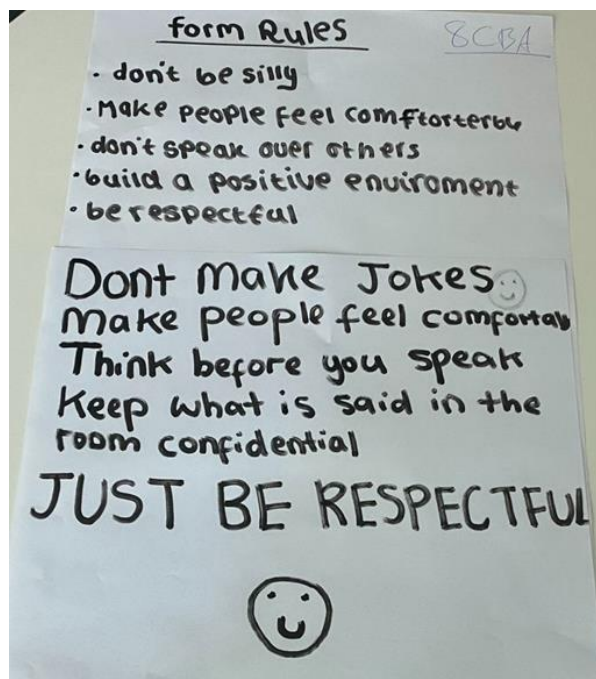 form Rules 8CBA
· don't be silly
· Make people feel comftorterby
· don't speak over others
· build a positive enviroment
· be respectful
Dont make Jokes
Make people feel comfortab
Think before you speak
Keep what is said in the
room confidential
JUST BE RESPECTFUL